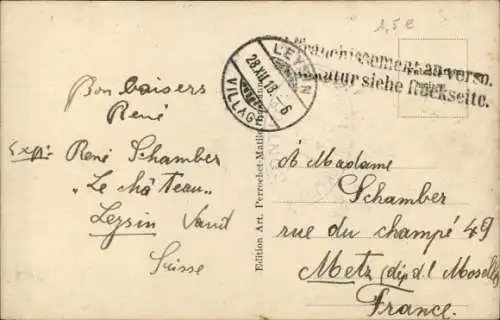 1,5€
Affranchissement au verso.
Frankatur siehe Rückseite.
LEYSIN
28.XII.18.-6
VILLAGE
Bon baisers
René
Exp: René Schamber
"Le château"
Leysin Vaud
Suisse
Edition Art. Perrochet-Matile
À Madame
Schamber
rue du champé 49
Metz (dép. d. l Moselle)
France.